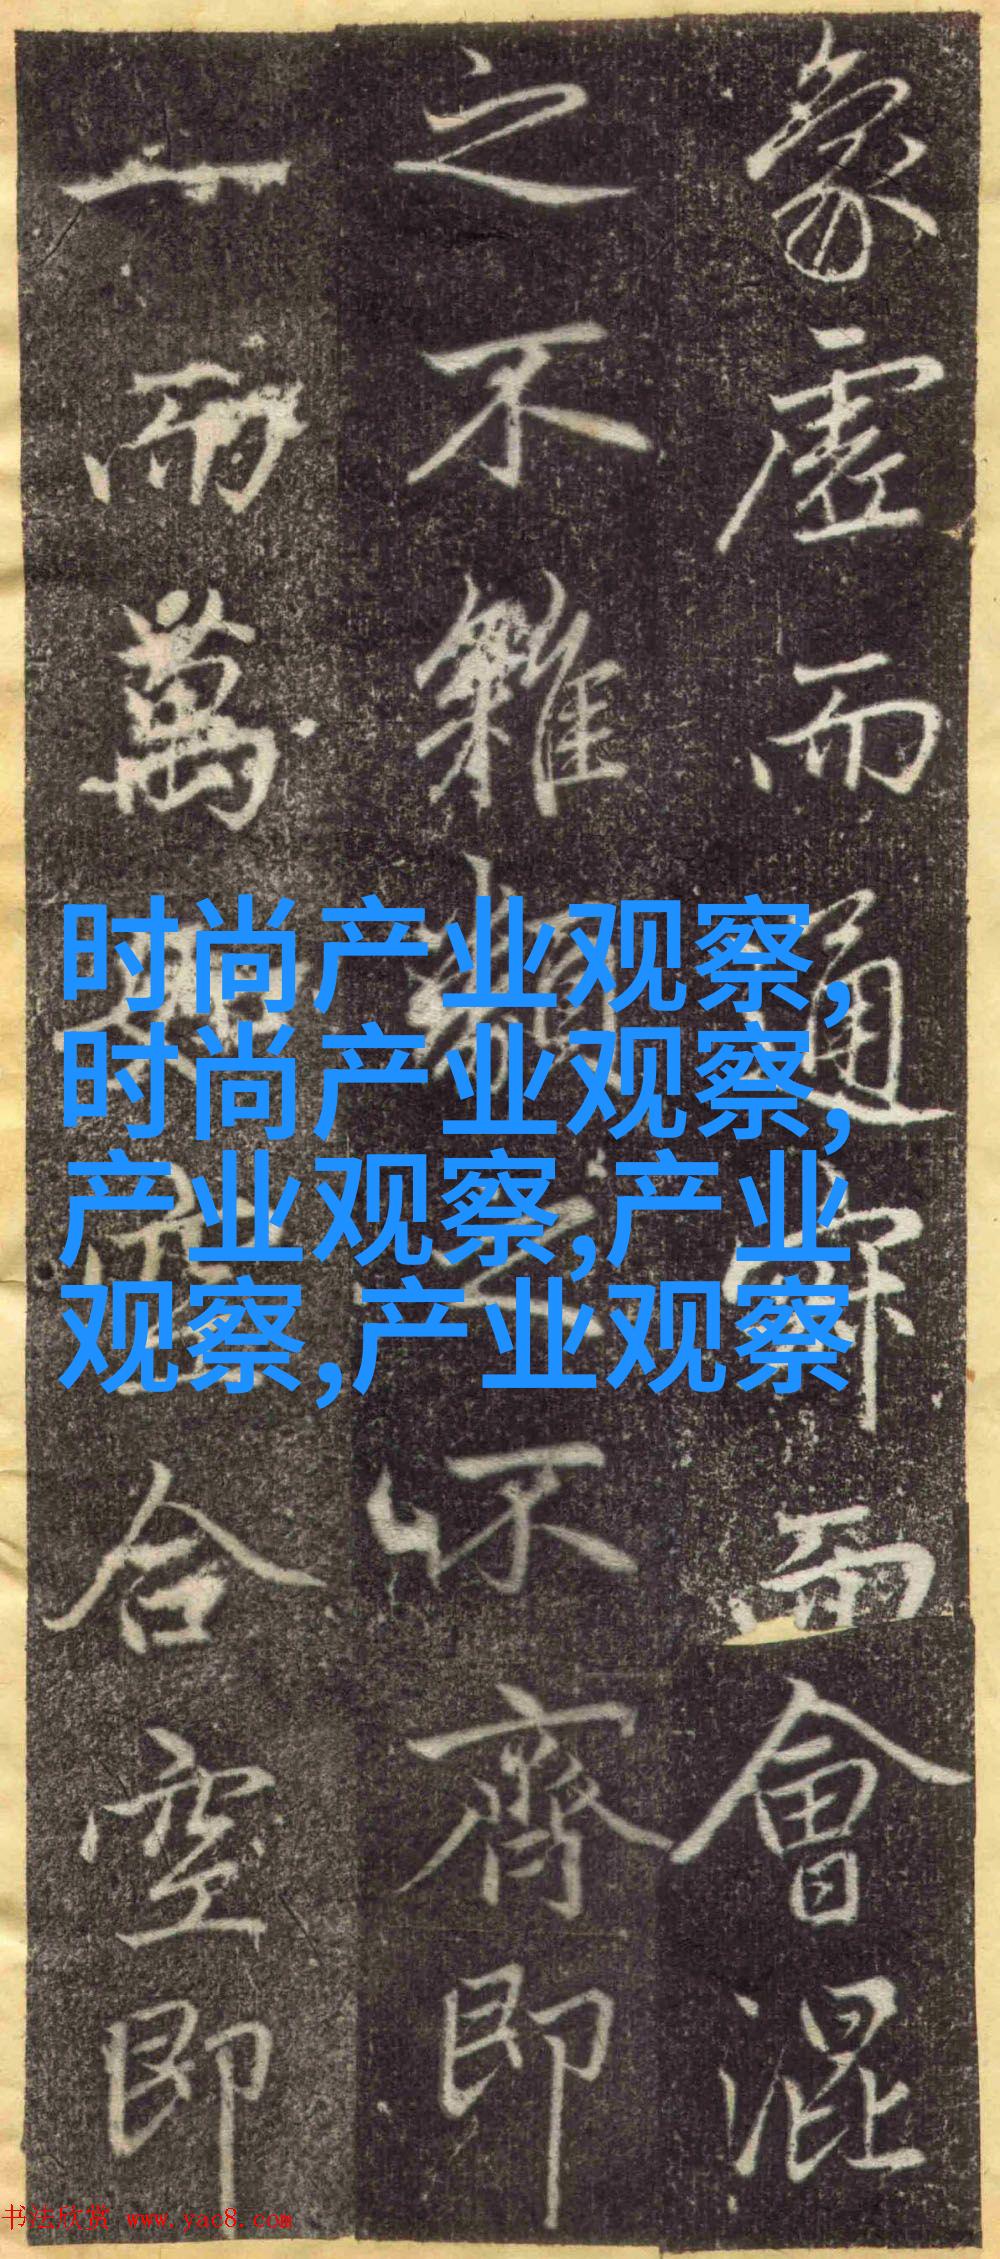 象虛而通而會混
之不雜類之不齊即
一而萬合空即
时尚产业观察,
时尚产业观察,
产业观察,产业
观察,产业观察
书法欣赏 www.yac8.com